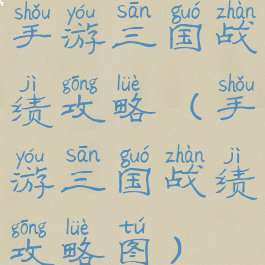 shǒu yóu sān guó zhàn
手游三国战
jì gōng lüè shǒu
绩攻略（手
yóu sān guó zhàn jì
游三国战绩
gōng lüè tú
攻略图）